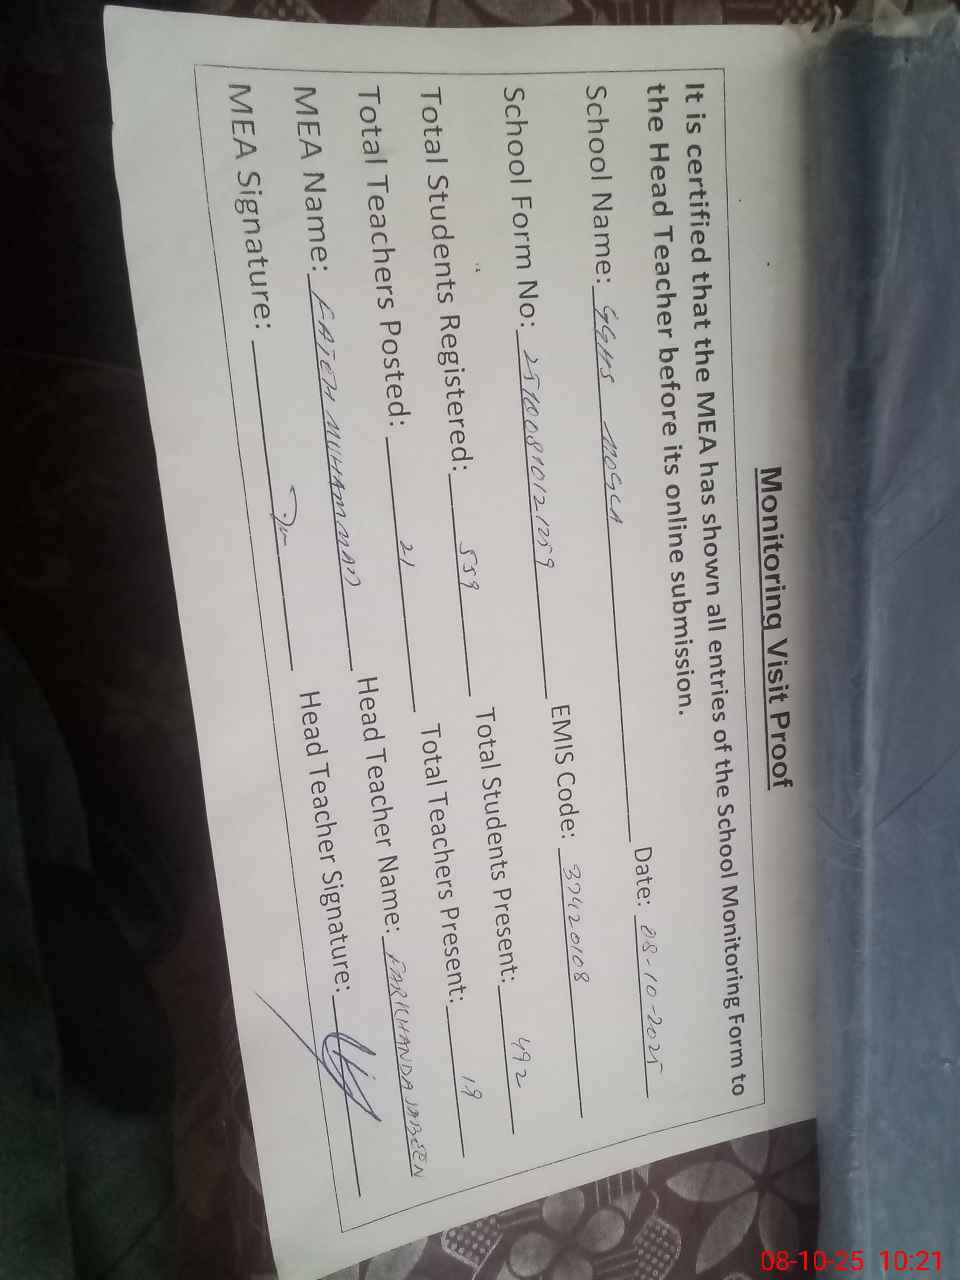 Monitoring Visit Proof
It is certified that the MEA has shown all entries of the School Monitoring Form to
the Head Teacher before its online submission.
School Name: GGHS MOGLA Date: 08-10-2025
School Form No: EMIS Code: 37420108
Total Students Registered: 559 Total Students Present: 492
Total Teachers Posted: 21 Total Teachers Present: 19
MEA Name: FATEH MUHAMMAD Head Teacher Name: FARKHANDA JABEEN
MEA Signature: Head Teacher Signature:
08-10-25 10:21